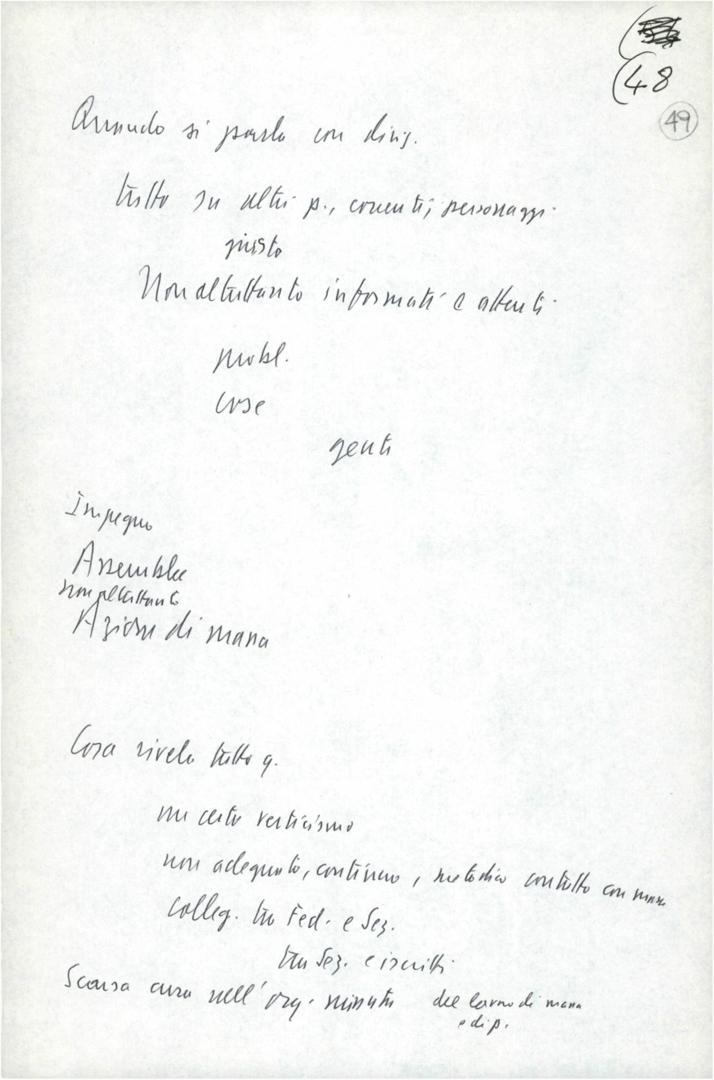 (48
49
Quando si parla con dirig.
tutto su altri p., correnti, personaggi
giusto
Non altrettanto informati e attenti
probl.
cose
genti
Impegno
Assemblee
non altrettanto
Azione di massa
Cosa rivela tutto q.
un certo verticismo
non adeguato, continuo, metodico contatto con masse
colleg. tra Fed. e Sez.
tra Sez. e iscritti
Scarsa cura nell'org. minuta del lavoro di massa
e di p.